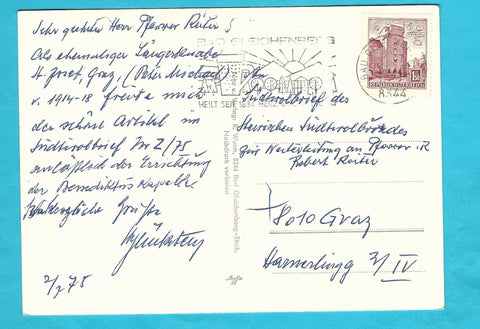 Sehr geehrter Herr Pfarrer Reiter!
Als ehemaliger Sängerknabe
St. Josef, Graz, (Pater
v. 1914-18 freute mich
der schöne Artikel im
Südtirolbrief Nr 2/75
anläßlich der Errichtung
der Benediktus Kapelle.
Grüße
2/7 75
BAD GLEICHENBERG
HEILT SEIT
8344
REPUBLIK ÖSTERREICH
An
Südtirolbrief des
Steirischen Südtirolbundes
Zur Weiterleitung an Pfarrer i.R
Robert Reiter
8010 Graz
Hamerlingg 3/IV
Wurm, 8344 Bad Gleichenberg - Stmk.
Nachdruck verboten